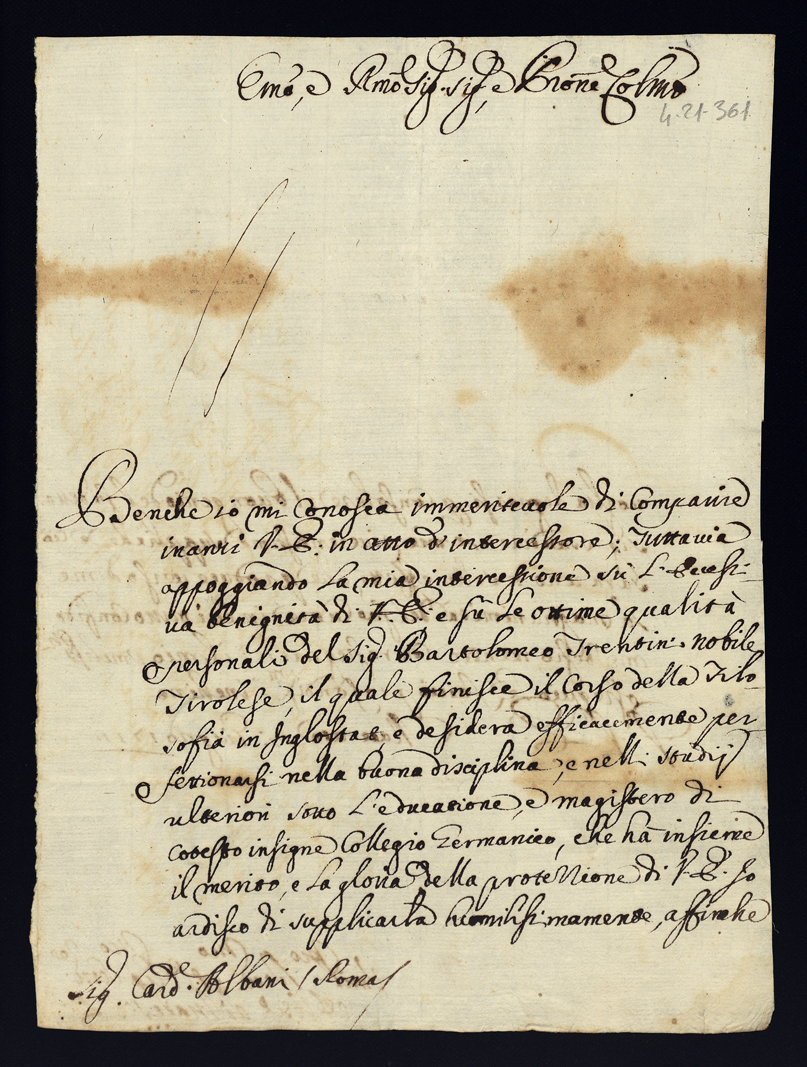 Emo, e Rmo Sig. Sig, e Prone Colmo
4-21-361
Benche io mi conosca immeriteuole di Comparire
inanzi V. E. in atto d'intercessore; Tuttauia
appoggiando la mia intercessione sù l'Ecessi-
ua benignità di V. E. e sù le ottime qualità
personali del Sig. Bartolomeo Trentin nobile
Tirolese, il quale finisce il Corso della Filo-
sofia in Inglostat, e desidera efficacemente per
fettionarsi nella buona disciplina, e nelli studij
ulteriori sotto l'educatione, e magistero di
cotesto insigne Collegio Germanico, che hà insieme
il merito, e la gloria della protettione di V. E. Jo
ardisco di supplicarla humilissimamente, affinche
Sig. Card. Albani / Roma /